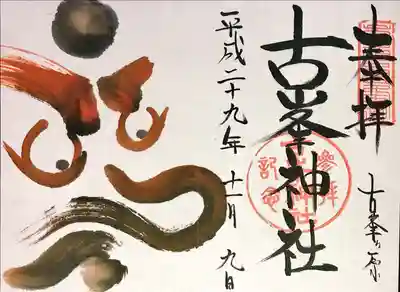 奉拝
古峯ヶ原
古峯神社
参拝
記念
平成二十九年 十一月 九日